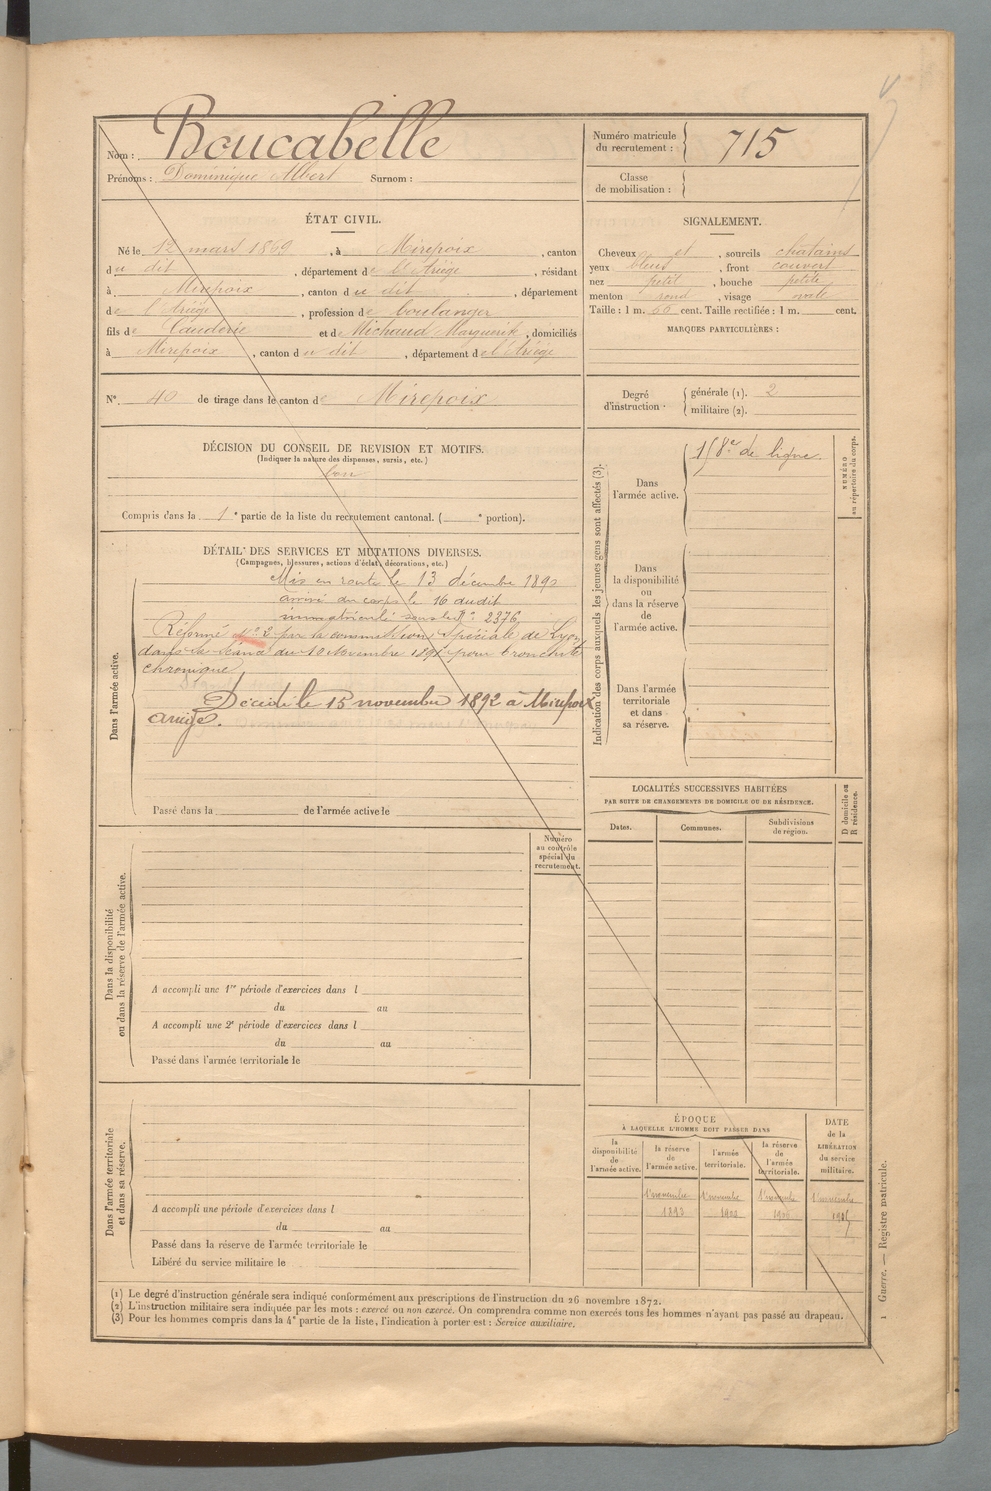 Nom : Boucabelle
Prénoms : Dominique Albert Surnom :
Numéro matricule du recrutement : 715
Classe de mobilisation :
ÉTAT CIVIL.
Né le 12 mars 1869, à Mirepoix, canton
du dit, département de l'Ariège, résidant
à Mirepoix, canton du dit, département
de l'Ariège, profession de boulanger
fils de Cauderie et de Michaud Marguerite, domiciliés
à Mirepoix, canton du dit, département de l'Ariège
SIGNALEMENT.
Cheveux et, sourcils chatains
yeux bleus, front couvert
nez petit, bouche petite
menton rond, visage ovale
Taille : 1 m. 66 cent. Taille rectifiée : 1 m. cent.
MARQUES PARTICULIÈRES :
N° 40 de tirage dans le canton de Mirepoix
Degré d'instruction
générale (1). 2
militaire (2).
DÉCISION DU CONSEIL DE REVISION ET MOTIFS.
(Indiquer la nature des dispenses, sursis, etc.)
bon
Compris dans la 1e partie de la liste du recrutement cantonal. ( e portion).
DÉTAIL DES SERVICES ET MUTATIONS DIVERSES.
(Campagnes, blessures, actions d'éclat, décorations, etc.)
Dans l'armée active.
Mis en route le 13 décembre 1890
arrivé au corps le 16 dudit
immatriculé sous le N° 2376
Réformé N° 2 par la commission spéciale de Lyon
dans sa séance du 10 novembre pour bronchite
chronique
Décédé le 15 novembre 1892 à Mirepoix
ariège.
Passé dans la de l'armée active le
Indication des corps auxquels les jeunes gens sont affectés (3).
NUMÉRO au répertoire du corps.
Dans l'armée active.
158e de ligne.
Dans la disponibilité ou dans la réserve de l'armée active.
Dans l'armée territoriale et dans sa réserve.
LOCALITÉS SUCCESSIVES HABITÉES
PAR SUITE DE CHANGEMENTS DE DOMICILE OU DE RÉSIDENCE.
D domicile ou R résidence.
Dates. Communes. Subdivisions de région.
Numéro au contrôle spécial du recrutement.
Dans la disponibilité ou dans la réserve de l'armée active.
A accompli une 1re période d'exercices dans l
du au
A accompli une 2e période d'exercices dans l
du au
Passé dans l'armée territoriale le
Dans l'armée territoriale et dans sa réserve.
A accompli une période d'exercices dans l
du au
Passé dans la réserve de l'armée territoriale le
Libéré du service militaire le
ÉPOQUE
À LAQUELLE L'HOMME DOIT PASSER DANS
DATE de la LIBÉRATION du service militaire.
la disponibilité de l'armée active.
la réserve de l'armée active.
l'armée territoriale.
la réserve de l'armée territoriale.
1er novembre 1er novembre 1er novembre 1er novembre
1893
(1) Le degré d'instruction générale sera indiqué conformément aux prescriptions de l'instruction du 26 novembre 1872.
(2) L'instruction militaire sera indiquée par les mots : exercé ou non exercé. On comprendra comme non exercés tous les hommes n'ayant pas passé au drapeau.
(3) Pour les hommes compris dans la 4e partie de la liste, l'indication à porter est : Service auxiliaire.
1 Guerre. — Registre matricule.